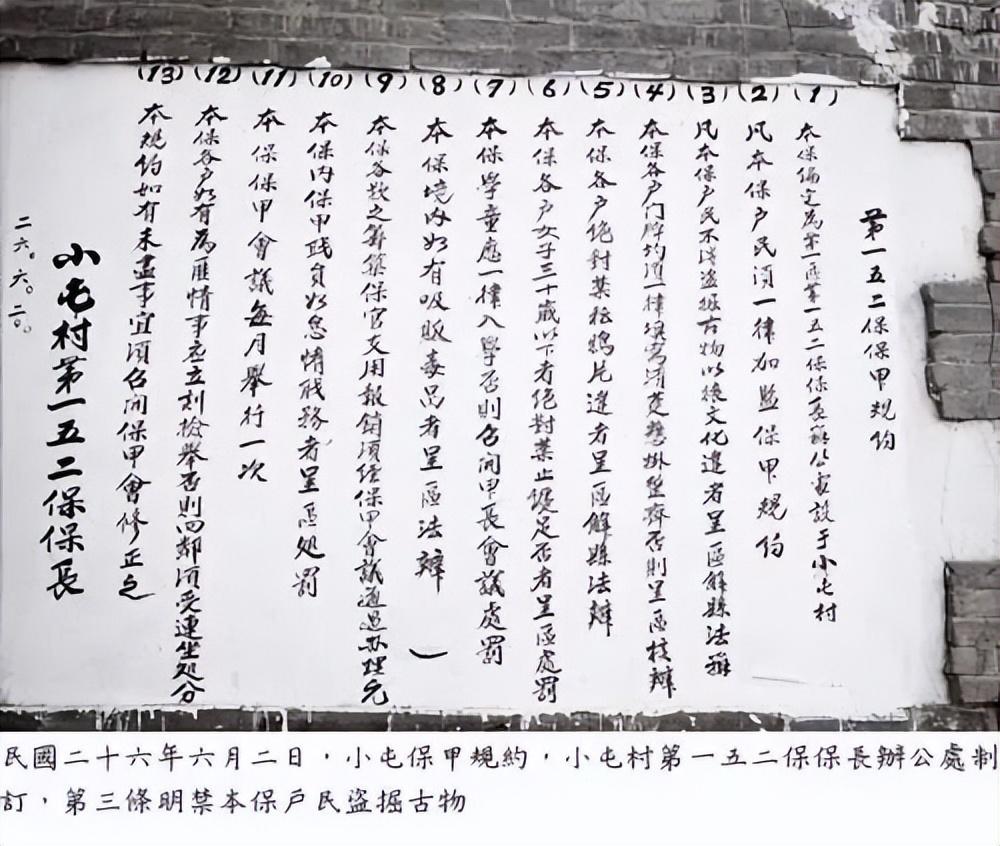 第一五二保保甲規約
(1) 本保編定為第一區第一五二保保長辦公處設于小屯村
(2) 凡本保戶民須一律加盟保甲規約
(3) 凡本保戶民不得盜掘古物以損文化違者呈區解縣法辦
(4) 本保各户门牌均須一律填寫清楚懸掛整齊否則呈區核辦
(5) 本保各户绝對禁種鴉片違者呈區解縣法辦
(6) 本保各户女子三十歲以下者绝對禁止纏足否者呈區處罰
(7) 本保學童應一律入學否則召開甲長會議處罰
(8) 本保境內如有吸販毒品者呈區法辦
(9) 本保各款之籌築保官支用報銷須經保甲會議通過办理
(10) 本保内保甲職員如怠惰職務者呈區処罰
(11) 本保保甲會議每月舉行一次
(12) 本保各户如有為匪情事应立刻檢舉否則四鄰須受連坐処分
(13) 本規約如有未盡事宜須召開保甲會修正之
小屯村第一五二保保長
二六。六。二。
民國二十六年六月二日，小屯保甲規約，小屯村第一五二保保長辦公處制
訂，第三條明禁本保戶民盜掘古物